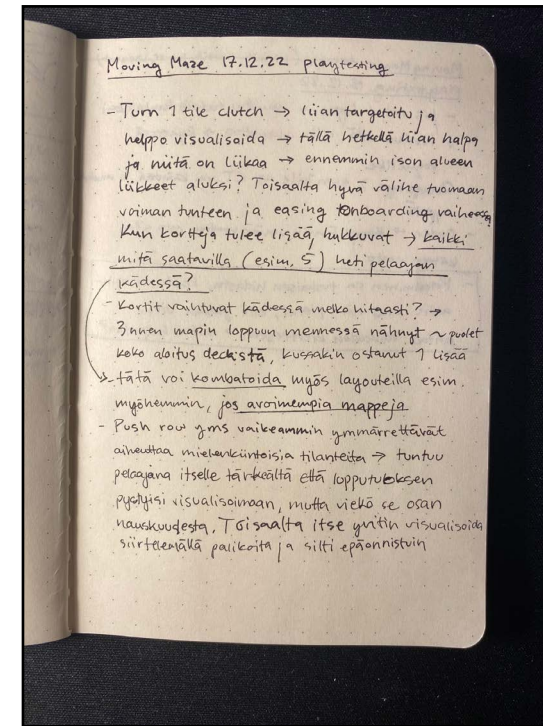 Moving Maze 17.12.22 playtesting
- Turn 1 tile clutch → liian targetoitu ja
helppo visualisoida → tällä hetkellä liian halpa
ja niitä on liikaa → ennemmin ison alueen
liikkeet aluksi? Toisaalta hyvä väline tuomaan
voiman tunteen ja easing onboarding vaiheessa
Kun kortteja tulee lisää, hukkuvat → kaikki
mitä saatavilla (esim. 5) heti pelaajan
kädessä?
- Kortit vaihtuvat kädessä melko hitaasti? →
3nnen mapin loppuun mennessä nähnyt ~ puolet
koko aloitus deckistä, kussakin ostanut 1 lisää
- tätä voi kombatoida myös layouteilla esim.
myöhemmin, jos avoimempia mappeja
- Push row yms vaikeammin ymmärrettävät
aiheuttaa mielenkiintoisia tilanteita → tuntuu
pelaajana itselle tärkeältä että lopputuloksen
pystyisi visualisoimaan, mutta viekö se osan
hauskuudesta. Toisaalta itse yritin visualisoida
siirtelemällä palikoita ja silti epäonnistuin